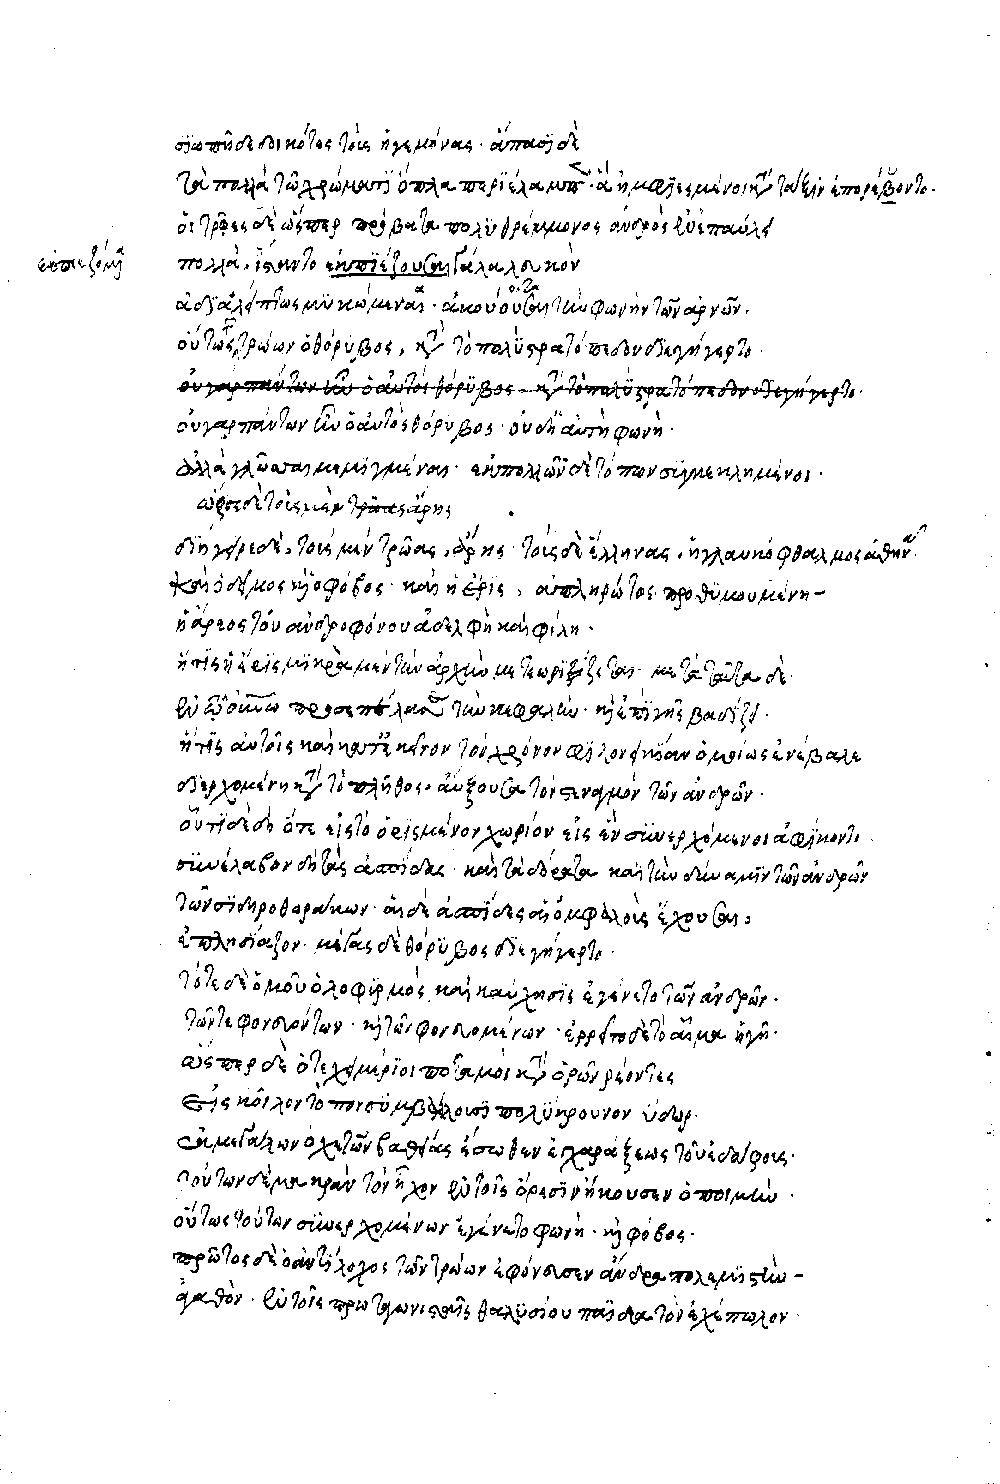 σϊωπῆ δεδοικότες τοὺς ἡγεμόνας · ἅπασϊ δὲ
τὰ πολλὰ τῶ χρώματϊ ὅπλα περϊέλαμπ · ἃ ἠμφϊεσμένοι κατὰ τάξϊν ἐπορεύοντο ·
οἱ τρῶες δὲ ὥσπερ πρόβατα πολϋθρέμμονος ἀνδρὸς ἐν ἐπαύλει
πολλὰ, ἵσταντο ἐκπϊέζουσαι γάλα λευκὸν
ἐκπιεζόμεναι
ἀδϊαλείπτως μϋκώμεναι · ἀκούουσαι τὴν φωνὴν τῶν ἀρνῶν ·
οὕτως τῶν τρώων ὁ θόρϋβος, κατὰ τὸ πολὺ στρατόπεδον διεγήγερτο ·
οὐ γὰρ πάντων ἦν ὁ αὐτὸς θόρϋβος · κατὰ τὸ πολὺ στρατόπεδον διεγήγερτο ·
οὐ γὰρ πάντων ἦν ὁ αὐτὸς θόρυβος · οὐδὲ αὐτὴ φωνὴ ·
ἀλλὰ γλῶσσαι μεμϊγμέναι · ἐκ πολλῶν δὲ τόπων σϋγκεκλημένοι ·
ὦρσε δὲ τοὺς μὲν τρῶας ἄρης
διήγειρε δὲ, τοὺς μὲν τρῶας, ἄρης · τοὺς δὲ ἕλληνας, ἡ γλαυκόφθαλμος ἀθηνᾶ ·
καὶ ὁ δεῖμος καὶ ὁ φόβος · καὶ ἡ ἔρϊς, ἀπληρώτως προθϋμουμένη –
ἡ ἄρεος τοῦ ἀνδροφόνου ἀδελφὴ καὶ φίλη ·
ἥτϊς ἡ ἔρϊς μϊκρὰ μὲν τὴν ἀρχὴν μετεωρϊζεται · μετὰ ταῦτα δὲ ·
ἐν οὐρανῶ προσεπέλασε τὴν κεφαλὴν · καὶ ἐπὶ γῆς βαδίζει ·
ἥτϊς αὐτοῖς καὶ κατ' ἐκεῖνον τὸν χρόνον φϊλονεικίαν ὁμοίως ἐνέβαλε
διερχομένη κατὰ τὸ πλῆθος, αὔξουσα τὸν στεναγμὸν τῶν ἀνδρῶν ·
οὗτϊ δὲ δὴ ὅτε εἰς τὸ ὁρϊσμένον χωρίον εἰς ἓν σϋνερχόμενοι ἀφίκοντο
σϋνέλαβον δὴ τὰς ἀσπίδας · καὶ τὰ δόρατα καὶ τὴν δύναμϊν τῶν ἀνδρῶν
τῶν σϊδηροθωράκων · αἱ δὲ ἀσπίδες αἱ ὀμφαλοὺς ἔχουσαι,
ἐπλησίαζον · μέγας δὲ θόρϋβος διεγήγερτο ·
τότε δὲ ὁμοῦ ὀλοφϋρμὸς καὶ καύχησϊς ἐγένετο τῶν ἀνδρῶν ·
τῶν τε φονευόντων · καὶ τῶν φονευομένων · ἔρρει δὲ τὸ αἷμα ἡ γῆ ·
ὥσπερ δὲ ὅτε χειμέρϊοι ποταμοὶ κατὰ ὀρῶν ῥέοντες
εἰς κοῖλον τόπον σϋμβάλλουσϊ πολϋκρουνον ὕδωρ ·
ἐκ μεγάλων ὀχετῶν βαθείας ἔσωθεν ἐκχαράξεως τοῦ ἐδάφους ·
τούτων δὲ μακρὰν τὸν ἦχον ἐν τοῖς ὄρεσϊν ἤκουσεν ὁ ποιμὴν ·
οὕτως τούτων σϋνερχομένων ἐγένετο φωνὴ · καὶ φόβος ·
πρῶτος δὲ ὁ ἀντίλοχος τῶν τρώων ἐφόνευσεν ἄνδρα πολεμϊστὴν –
ἀγαθὸν · ἐν τοῖς πρωταγωνισταῖς θαλϋσίου παῖδα τὸν ἐχέπωλον ·